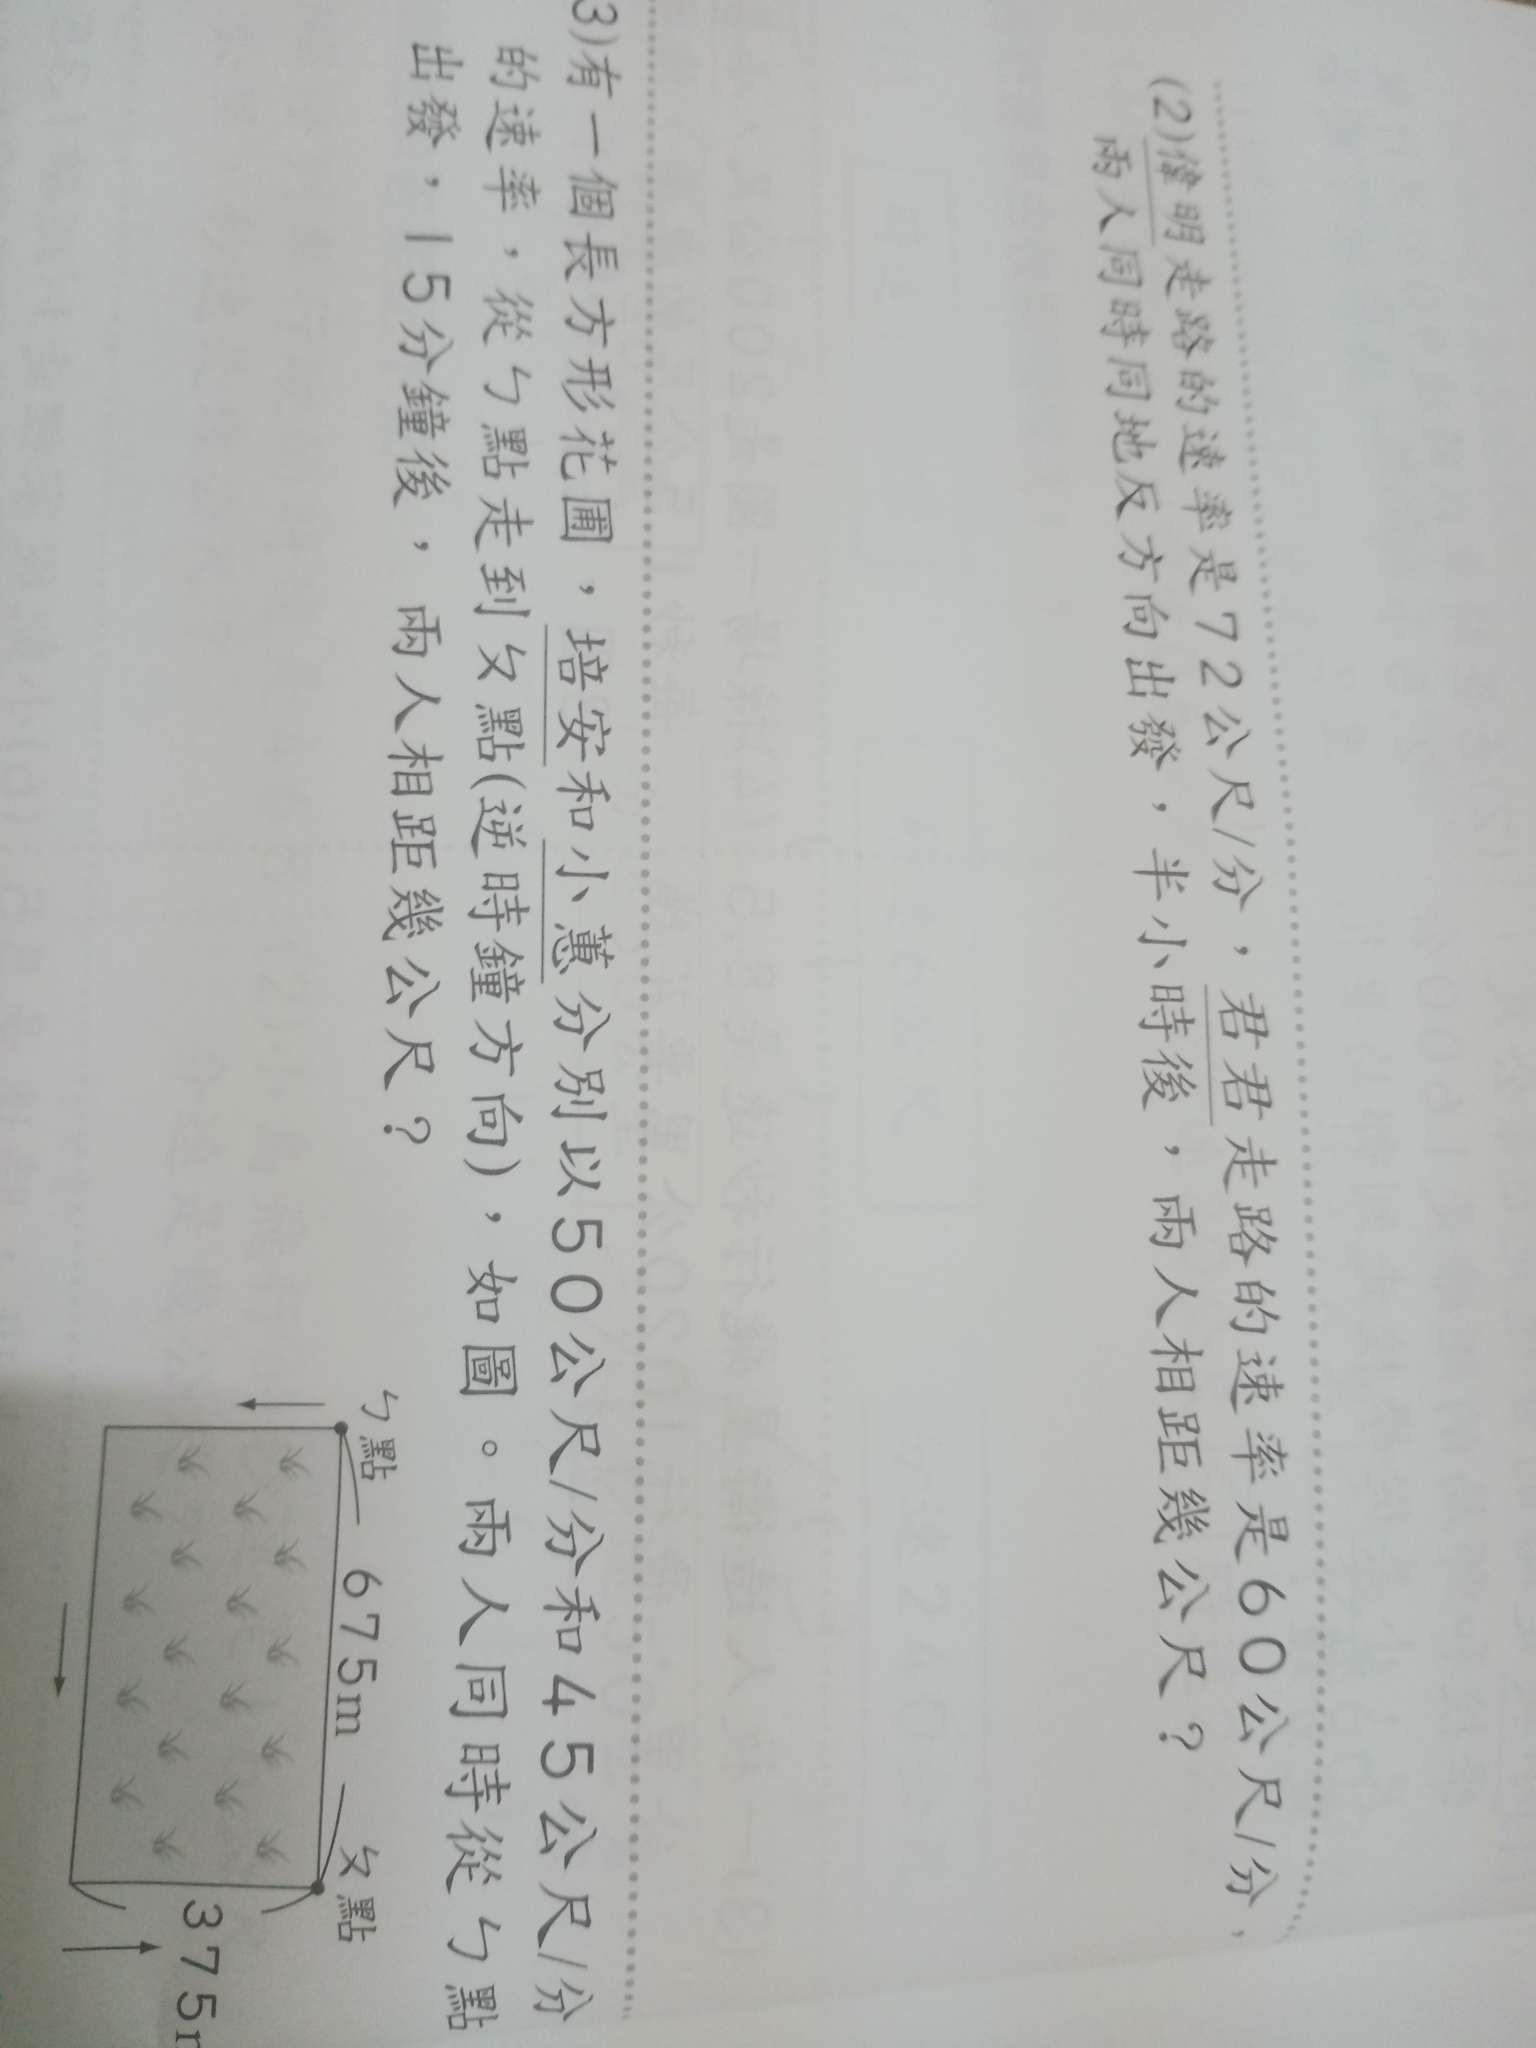 (2)偉明走路的速率是72公尺/分，君君走路的速率是60公尺/分，
兩人同時同地反方向出發，半小時後，兩人相距幾公尺？
3)有一個長方形花圃，培安和小蕙分別以50公尺/分和45公尺/分
的速率，從ㄅ點走到ㄆ點(逆時鐘方向)，如圖。兩人同時從ㄅ點
出發，15分鐘後，兩人相距幾公尺？
ㄅ點 675m ㄆ點
375m